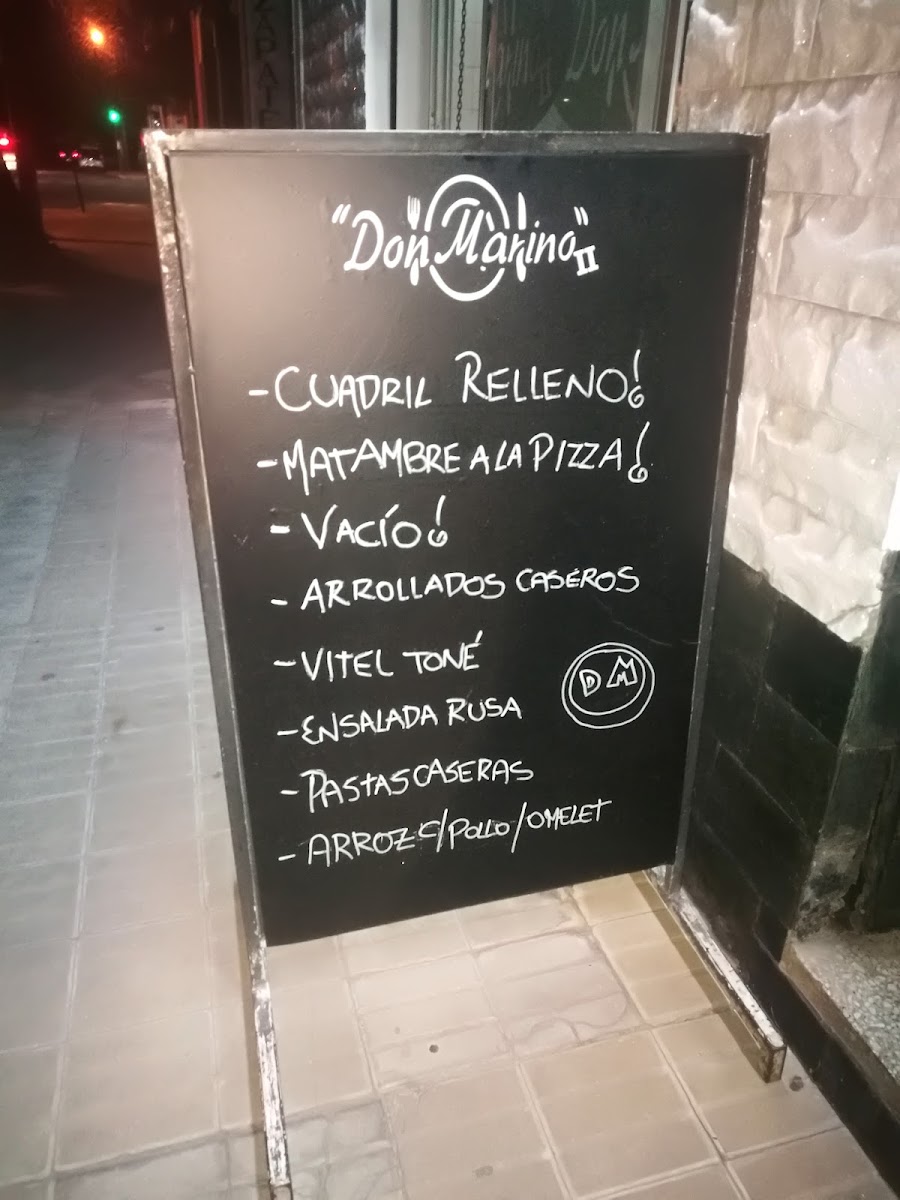 "Don Marino" II
- CUADRIL RELLENO!
- MATAMBRE A LA PIZZA!
- VACÍO!
- ARROLLADOS CASEROS
- VITEL TONÉ
DM
- ENSALADA RUSA
- PASTAS CASERAS
- ARROZ C/POLLO/OMELET
Don